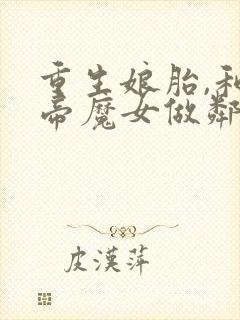 重生娘胎,和
帝魔女做鄰
皮漢萍